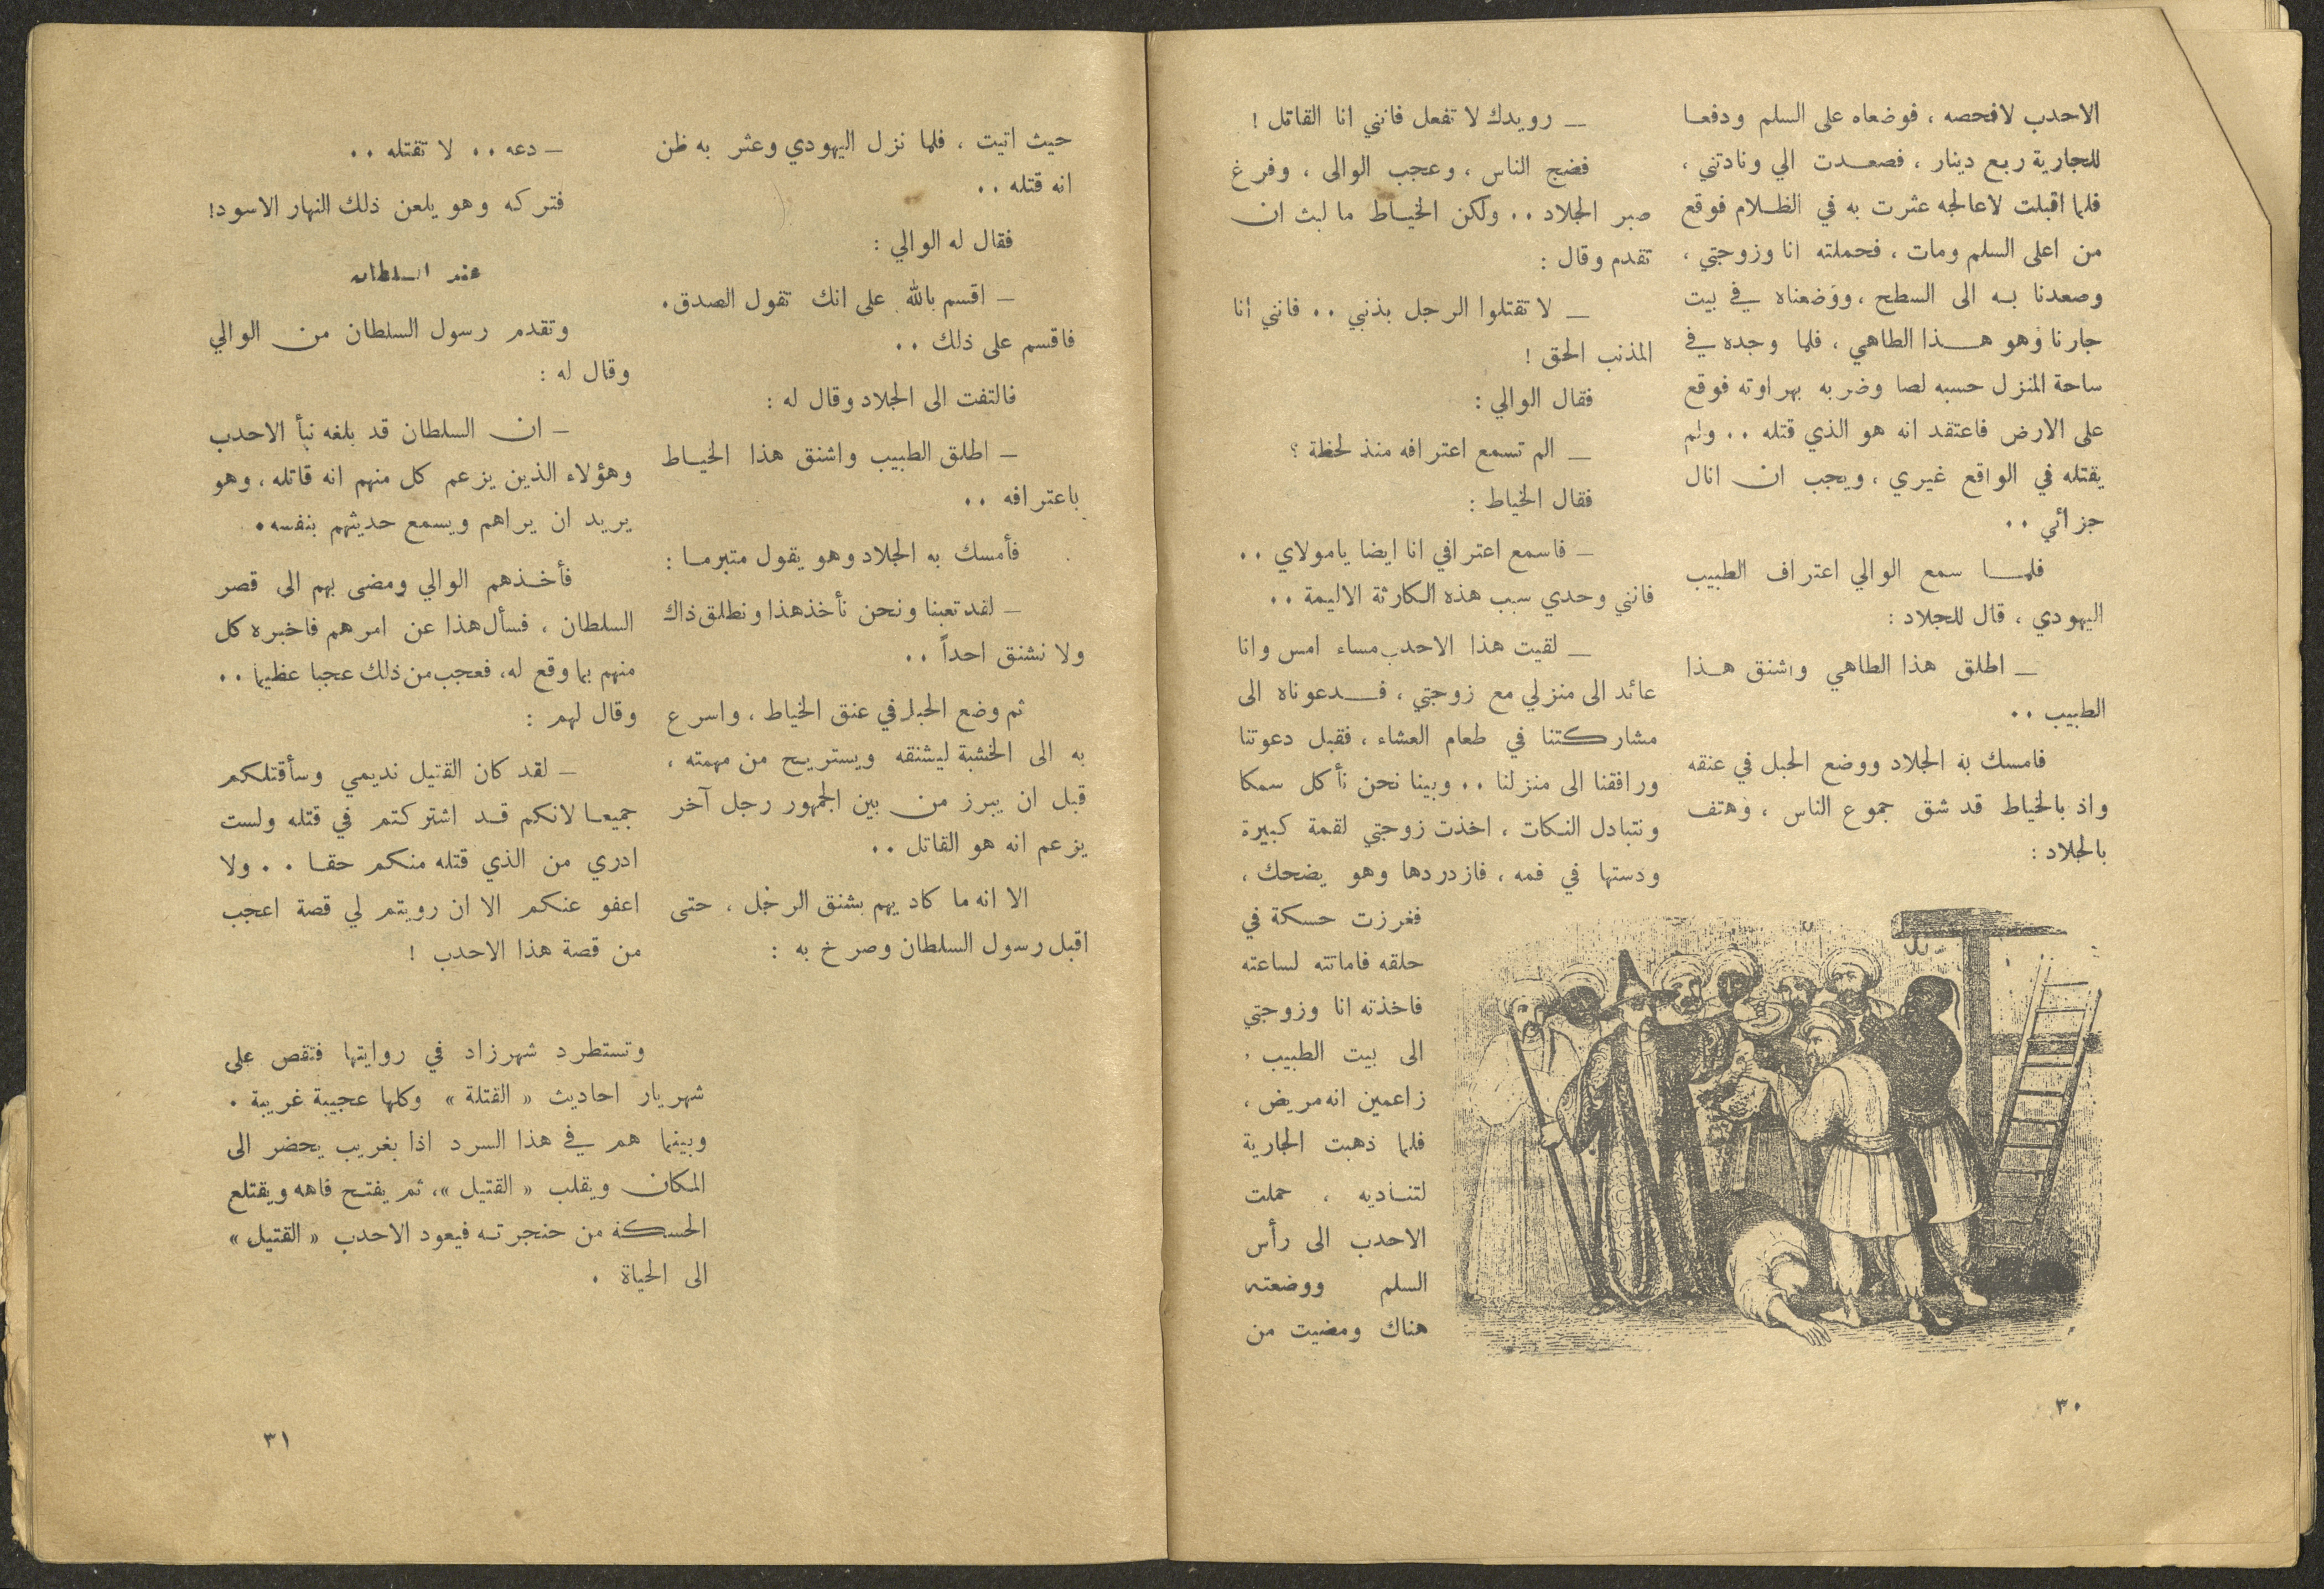 الاحدب لافحصه ، فوضعاه على السلم ودفعا
للجارية ربع دينار ، فصعدت الي ونادتني ،
فلما اقبلت لاعالجه عثرت به في الظلام فوقع
من اعلى السلم ومات ، فحملته انا وزوجتي ،
وصعدنا به الى السطح ، ووضعناه في بيت
جارنا وهو هذا الطاهي ، فلما وجده في
ساحة المنزل حسبه لصا وضربه بهراوته فوقع
على الارض فاعتقد انه هو الذي قتله .. ولم
يقتله في الواقع غيري ، ويجب ان انال
جزائي ..
فلما سمع الوالي اعتراف الطبيب
اليهودي ، قال للجلاد :
ـ اطلق هذا الطاهي واشنق هذا
الطبيب ..
فامسك به الجلاد ووضع الحبل في عنقه
واذ بالخياط قد شق جموع الناس ، وهتف
بالجلاد :
ـ رويدك لا تفعل فانني انا القاتل !
فضج الناس ، وعجب الوالى ، وفرغ
صبر الجلاد .. ولكن الخياط ما لبث ان
تقدم وقال :
ـ لا تقتلوا الرجل بذنبي .. فانني انا
المذنب الحق !
فقال الوالي :
ـ الم تسمع اعترافه منذ لحظة ؟
فقال الخياط :
ـ فاسمع اعترافي انا ايضا يامولاي ..
فانني وحدي سبب هذه الكارثة الاليمة ..
ـ لقيت هذا الاحدب مساء امس وانا
عائد الى منزلي مع زوجتي ، فدعوناه الى
مشاركتنا في طعام العشاء ، فقبل دعوتنا
ورافقنا الى منزلنا .. وبينا نحن نأكل سمكا
ونتبادل النكات ، اخذت زوجتي لقمة كبيرة
ودستها في فمه ، فازدردها وهو يضحك ،
فغرزت حسكة في
حلقه فاماتته لساعته
فاخذته انا وزوجتي
الى بيت الطبيب ،
زاعمين انه مريض ،
فلما ذهبت الجارية
لتناديه ، حملت
الاحدب الى رأس
السلم ووضعته
هناك ومضيت من
٣٠
حيث اتيت ، فلما نزل اليهودي وعثر به ظن
انه قتله ..
فقال له الوالي :
ـ اقسم بالله على انك تقول الصدق .
فاقسم على ذلك ..
فالتفت الى الجلاد وقال له :
ـ اطلق الطبيب واشنق هذا الخياط
باعترافه ..
فأمسك به الجلاد وهو يقول متبرما :
ـ لقد تعبنا ونحن نأخذ هذا ونطلق ذاك
ولا نشنق احداً ..
ثم وضع الحبل في عنق الخياط ، واسرع
به الى الخشبة ليشنقه ويستريح من مهمته ،
قبل ان يبرز من بين الجمهور رجل آخر
يزعم انه هو القاتل ..
الا انه ما كاد يهم بشنق الرجل ، حتى
اقبل رسول السلطان وصرخ به :
ـ دعه .. لا تقتله ..
فتركه وهو يلعن ذلك النهار الاسود !
عند السلطان
وتقدم رسول السلطان من الوالي
وقال له :
ـ ان السلطان قد بلغه نبأ الاحدب
وهؤلاء الذين يزعم كل منهم انه قاتله ، وهو
يريد ان يراهم ويسمع حديثهم بنفسه .
فأخذهم الوالي ومضى بهم الى قصر
السلطان ، فسأل هذا عن امرهم فاخبره كل
منهم بما وقع له ، فعجب من ذلك عجبا عظيما ..
وقال لهم :
ـ لقد كان القتيل نديمي وسأقتلكم
جميعا لانكم قد اشتركتم في قتله ولست
ادري من الذي قتله منكم حقا .. ولا
اعفو عنكم الا ان رويتم لي قصة اعجب
من قصة هذا الاحدب !
وتستطرد شهرزاد في روايتها فتقص على
شهريار احاديث « القتلة » وكلها عجيبة غريبة .
وبينما هم في هذا السرد اذا بغريب يحضر الى
المكان ويقلب « القتيل » ، ثم يفتح فاهه ويقتلع
الحسكة من حنجرته فيعود الاحدب « القتيل »
الى الحياة .
٣١